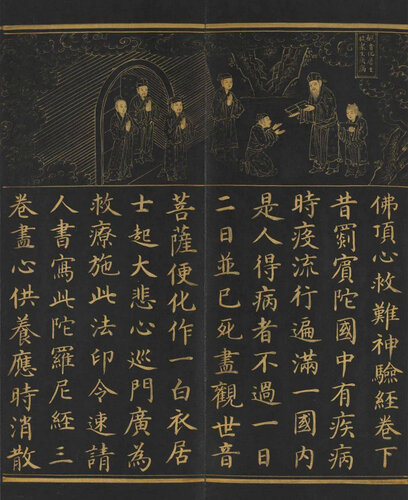 佛頂心救難神驗經卷下
昔罽賓陀國中有疾病
時疫流行遍滿一國內
是人得病者不過一日
二日並已死盡觀世音
菩薩便化作一白衣居
士起大悲心巡門廣為
救療施此法印令速請
人書寫此陀羅尼經三
卷盡心供養應時消散